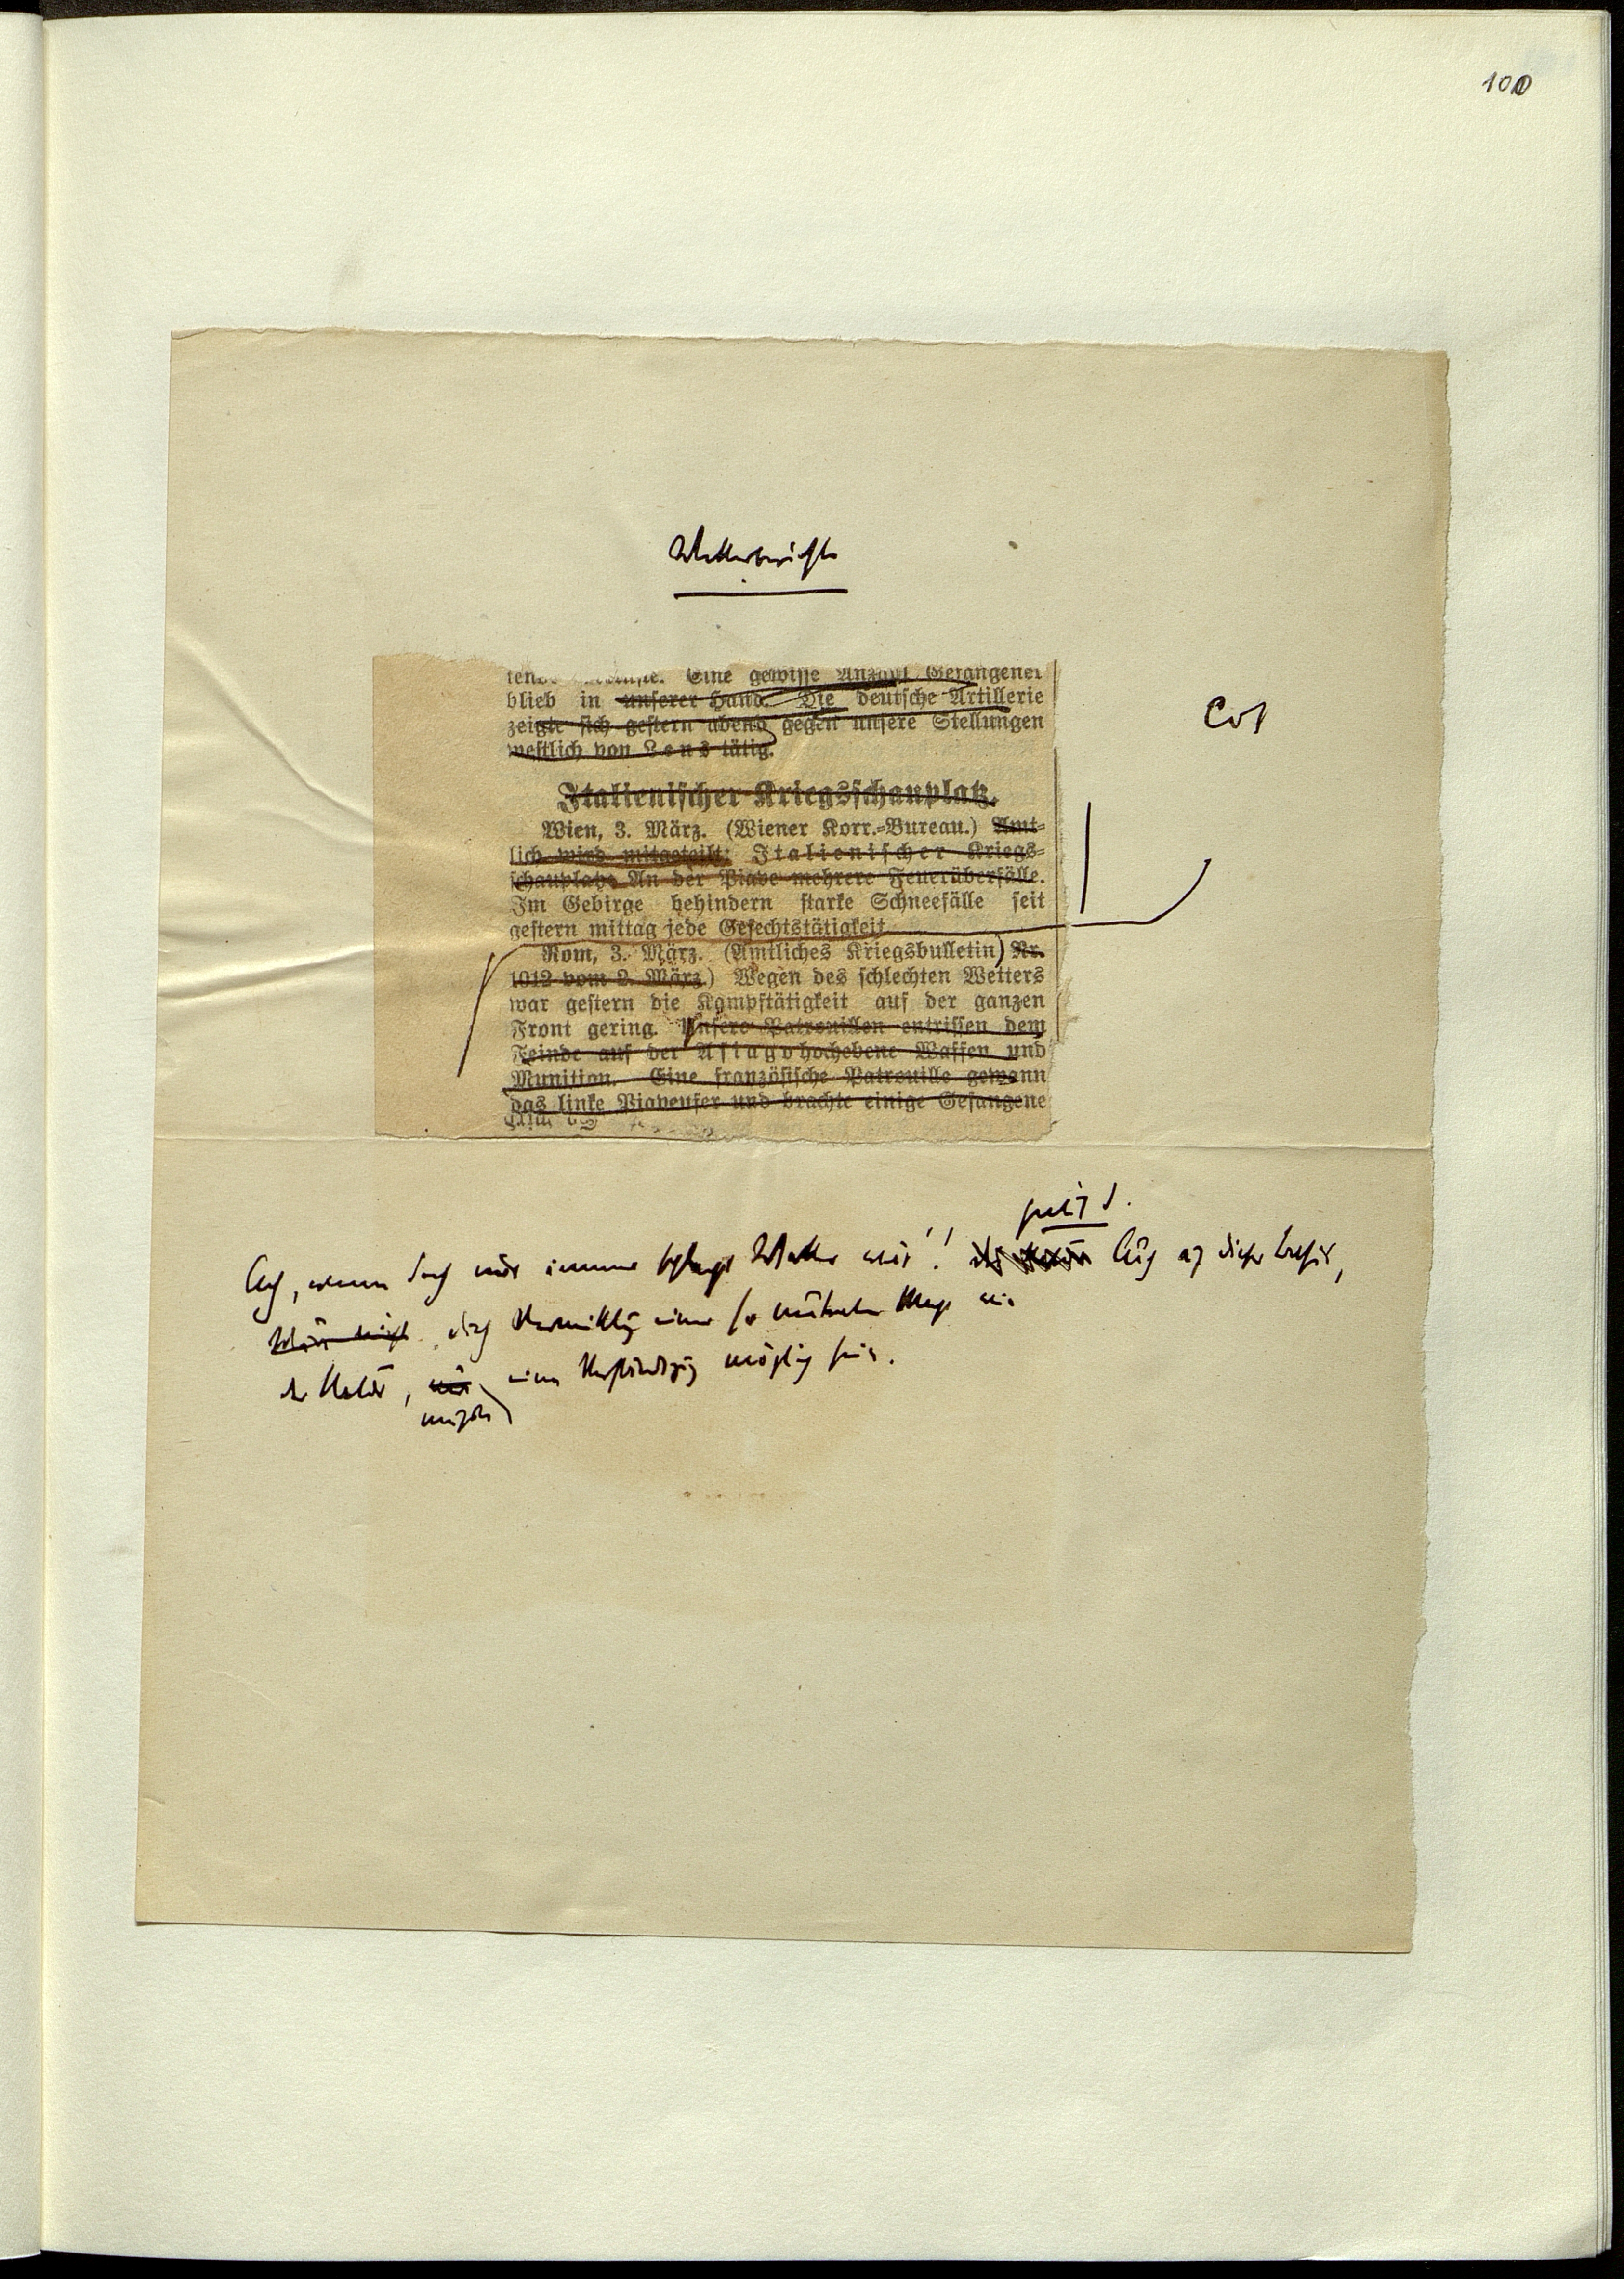 100
Wetterberichte
Eine gewisse Anzahl Gefangener
blieb in unserer Hand. Die deutsche Artillerie
zeigte sich gestern abend gegen unsere Stellungen
westlich von Lens tätig.
Italienischer Kriegsschauplatz.
Wien, 3. März. (Wiener Korr.-Bureau.) Amt-
lich wird mitgeteilt: Italienischer Kriegs-
schauplatz. An der Piave mehrere Feuerüberfälle.
Im Gebirge behindern starke Schneefälle seit
gestern mittag jede Gefechtstätigkeit
Rom, 3. März. (Amtliches Kriegsbulletin) Nr.
1012 vom 2. März.) Wegen des schlechten Wetters
war gestern die Kampftätigkeit auf der ganzen
Front gering. Unsere Patrouillen entrissen dem
Feinde auf der Asiagohochebene Waffen und
Munition. Eine französische Patrouille gewann
das linke Piaveufer und brachte einige Gefangene
Ach, wenn doch nur immer schlechtes Wetter wär'! Auch auf dieser Basis,
durch Vermittlung einer so neutralen Macht wie
der Natur, eine Verständigung möglich sein.